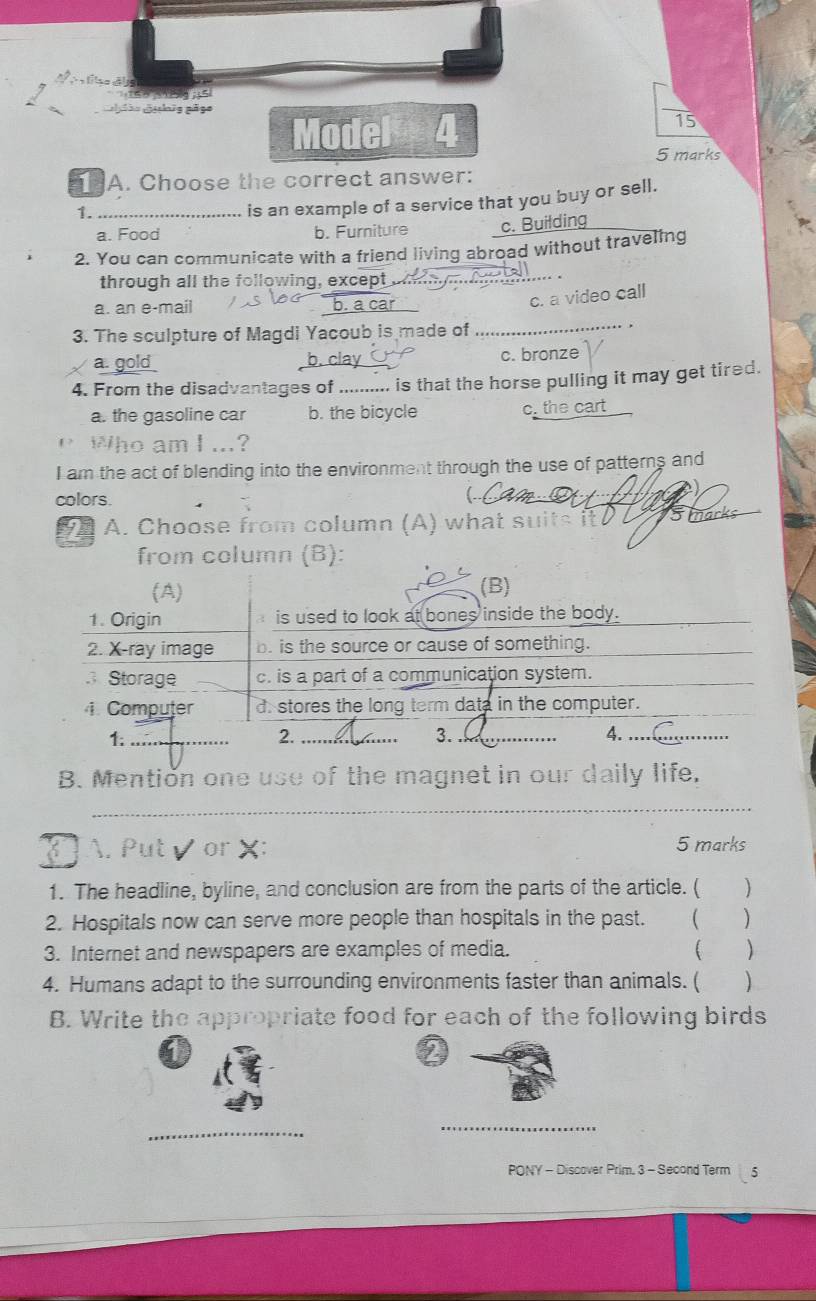 Model 4
15
5 marks
1 A. Choose the correct answer:
1. ............................ is an example of a service that you buy or sell.
a. Food b. Furniture c. Building
2. You can communicate with a friend living abroad without traveling
through all the following, except ............................ .
a. an e-mail b. a car c. a video call
3. The sculpture of Magdi Yacoub is made of ............................ .
a. gold b. clay c. bronze
4. From the disadvantages of .......... is that the horse pulling it may get tired.
a. the gasoline car b. the bicycle c. the cart
Who am I ...?
I am the act of blending into the environment through the use of patterns and
colors. (Camouflage)
5 marks
2 A. Choose from column (A) what suits it
from column (B):
(A) (B)
1. Origin a is used to look at bones inside the body.
2. X-ray image b. is the source or cause of something.
3 Storage c. is a part of a communication system.
4 Computer d. stores the long term data in the computer.
1: .................. 2. .................. 3. .................. 4. ..................
B. Mention one use of the magnet in our daily life.
3 A. Put ✓ or X: 5 marks
1. The headline, byline, and conclusion are from the parts of the article. ( )
2. Hospitals now can serve more people than hospitals in the past. ( )
3. Internet and newspapers are examples of media. ( )
4. Humans adapt to the surrounding environments faster than animals. ( )
B. Write the appropriate food for each of the following birds
1 2
PONY – Discover Prim. 3 – Second Term 5